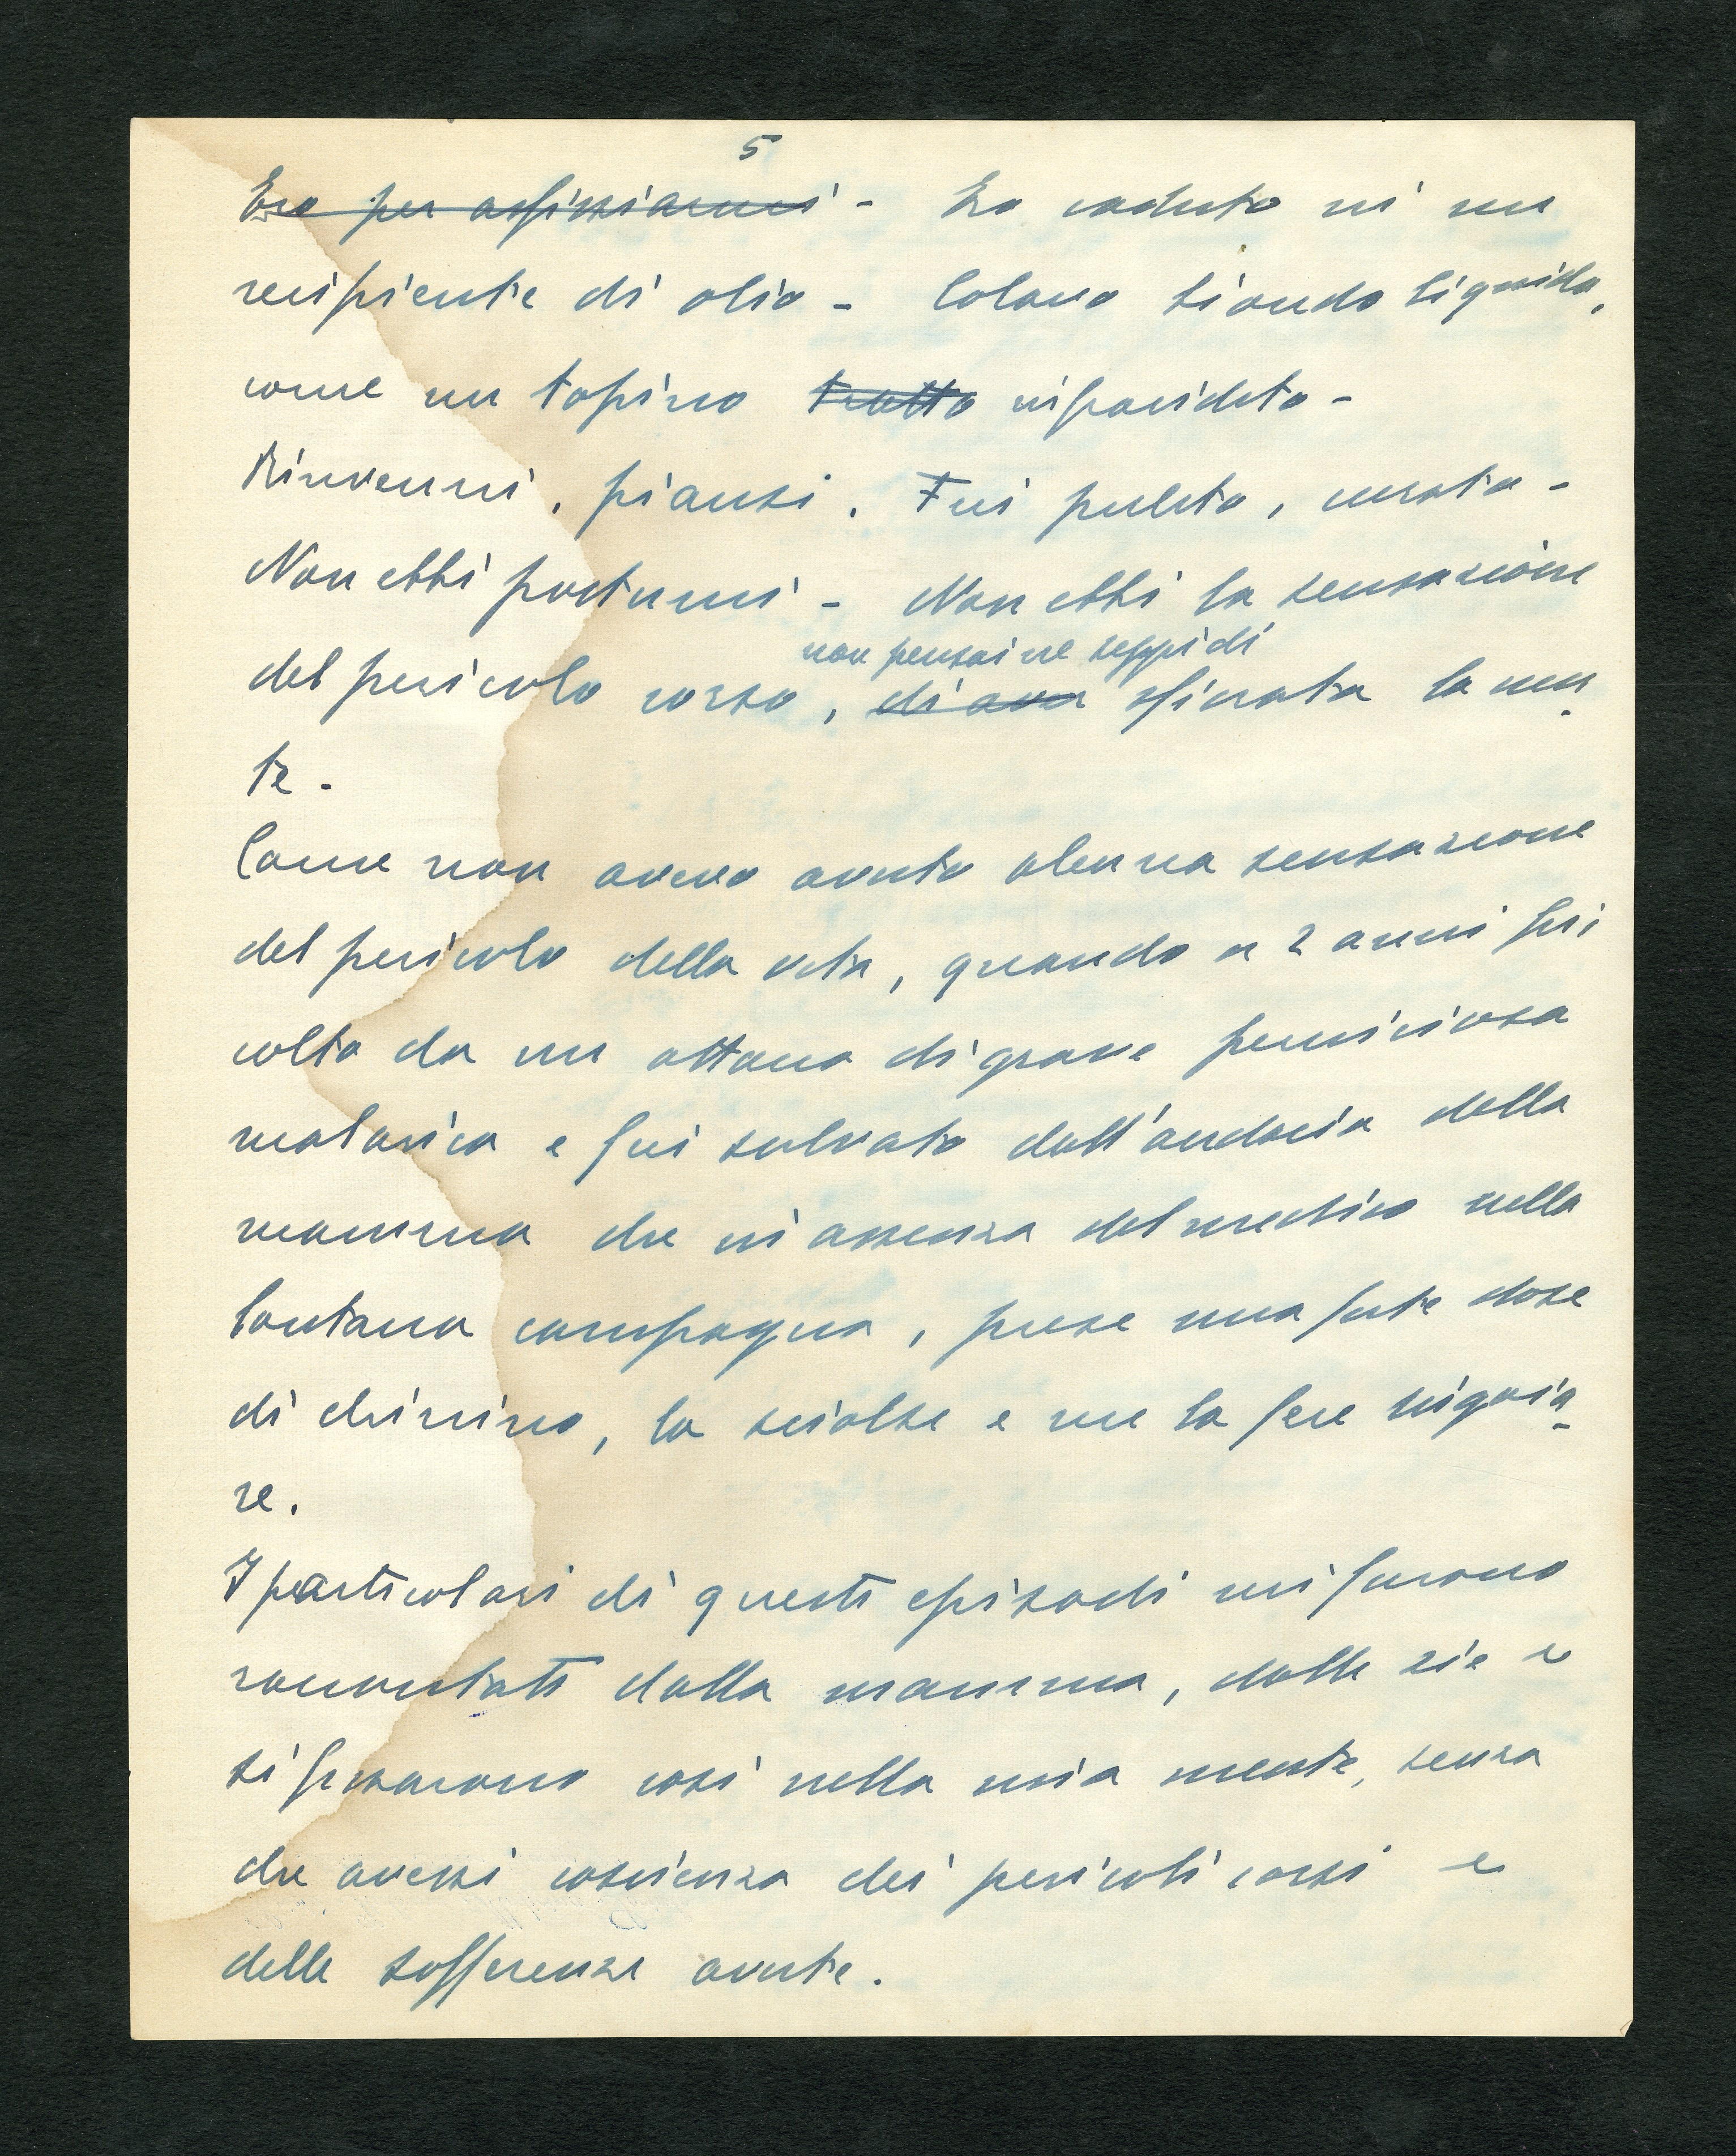 5
Ero per assfissiarmi - Ero caduto in un
recipiente di olio - Colavo biondo liquido,
come un topino tratto insporidito -
Rinvenni, piansi. Fui pulito, curato -
Non ebbi postumi - Non ebbi la sensazione
non pensai ne seppi di
del pericolo corso, di aver sfiorata la mor
te -
Come non avevo avuto alcuna sensazione
del pericolo della vita, quando a 2 anni fui
colto da un attacco di grave perniciosa
malarica e fui salvato dall'audacia della
mamma che in assenza del medico nella
lontana campagna, prese una forte dose
di chinino, la sciolse e me la fece ingoia-
re.
I particolari di questi episodi mi furono
raccontati dalla mamma, dalle zie e
si fissarono così nella mia mente, senza
che avessi coscienza dei pericoli corsi e
delle sofferenze avute.